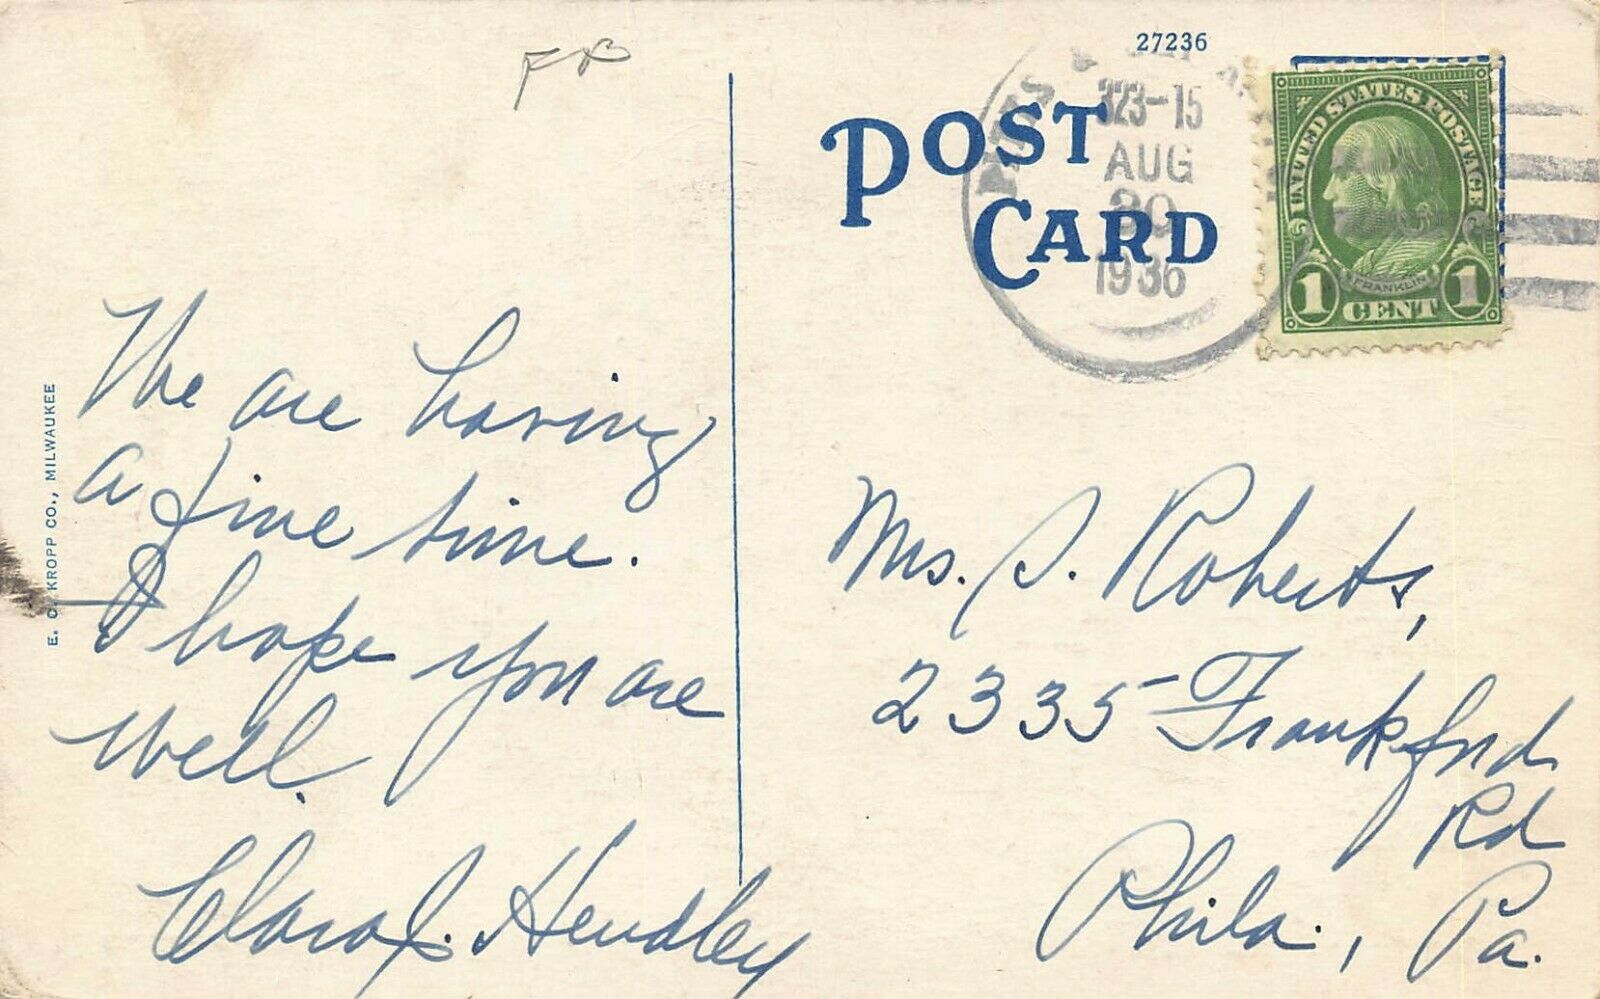 FB
27236
POST
CARD
323-15
AUG
30
1936
UNITED STATES POSTAGE
FRANKLIN
1 CENT 1
We are having
a fine time.
I hope you are
well.
Clara J. Hendley
Mrs. S. Roberts,
2335 Frankford
Rd
Phila., Pa.
E. C. KROPP CO., MILWAUKEE